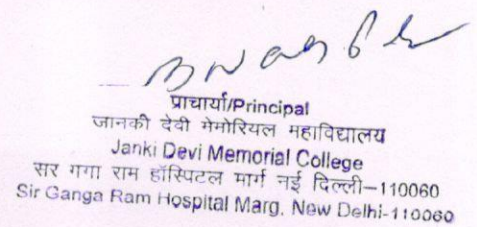 प्राचार्या/Principal
जानकी देवी मेमोरियल महाविद्यालय
Janki Devi Memorial College
सर गगा राम हॉस्पिटल मार्ग नई दिल्ली–110060
Sir Ganga Ram Hospital Marg, New Delhi-110060